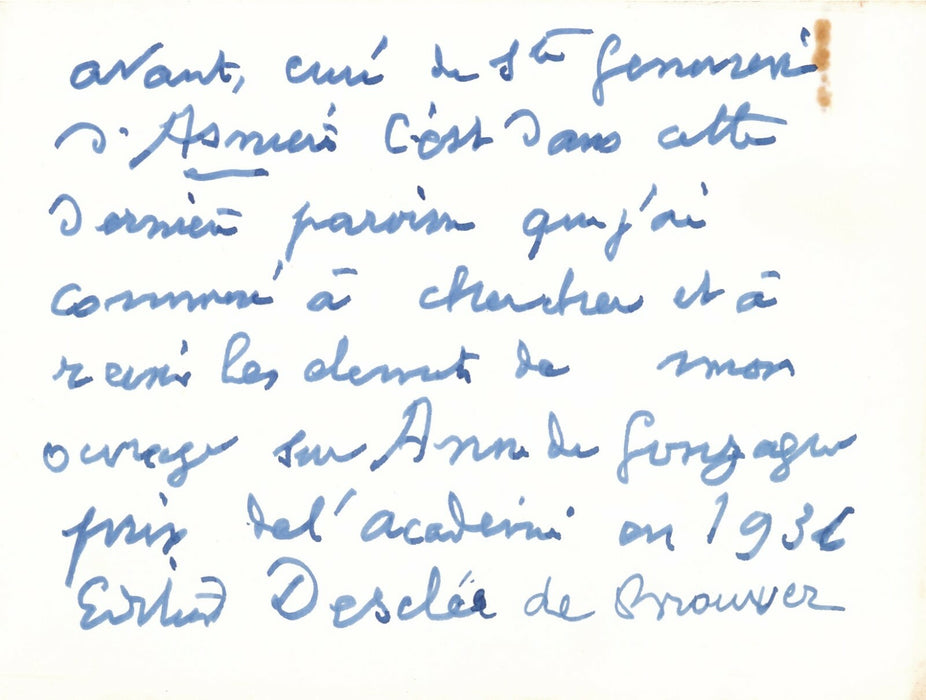 avant, curé de Ste Geneviève
d'Asnières C'est dans cette
dernière paroisse que j'ai
commencé à chercher et à
réunir les éléments de mon
ouvrage sur Anne de Gonzague
prix de l'académie en 1936
Desclée de Brouwer